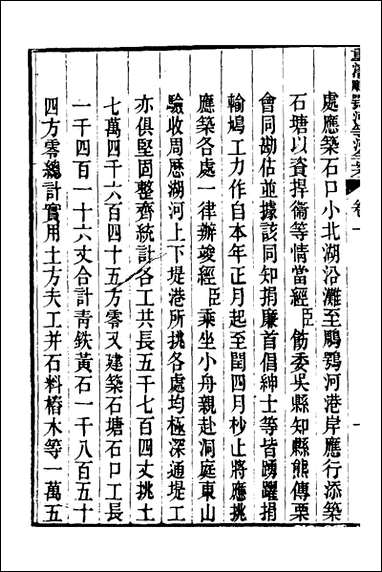 處應築石口小北湖沿灘至鷗鶚河港岸應行添築
石塘以資捍衞等情當經臣飭委吳縣知縣熊傳栗
會同勘估並據該同知捐廉首倡紳士等皆踴躍捐
輸鳩工力作自本年正月起至閏四月杪止將應挑
應築各處一律辦竣經臣乘坐小舟親赴洞庭東山
驗收周歷湖河上下堤港所挑各處均極深通堤工
亦俱堅固整齊統計各工共長五千七百四丈挑土
七萬四千六百四十五方零又建築石塘石口工長
一千四百一十六丈合計青鉄黃石一千八百五十
四方零總計實用土方夫工并石料樁木等一萬五